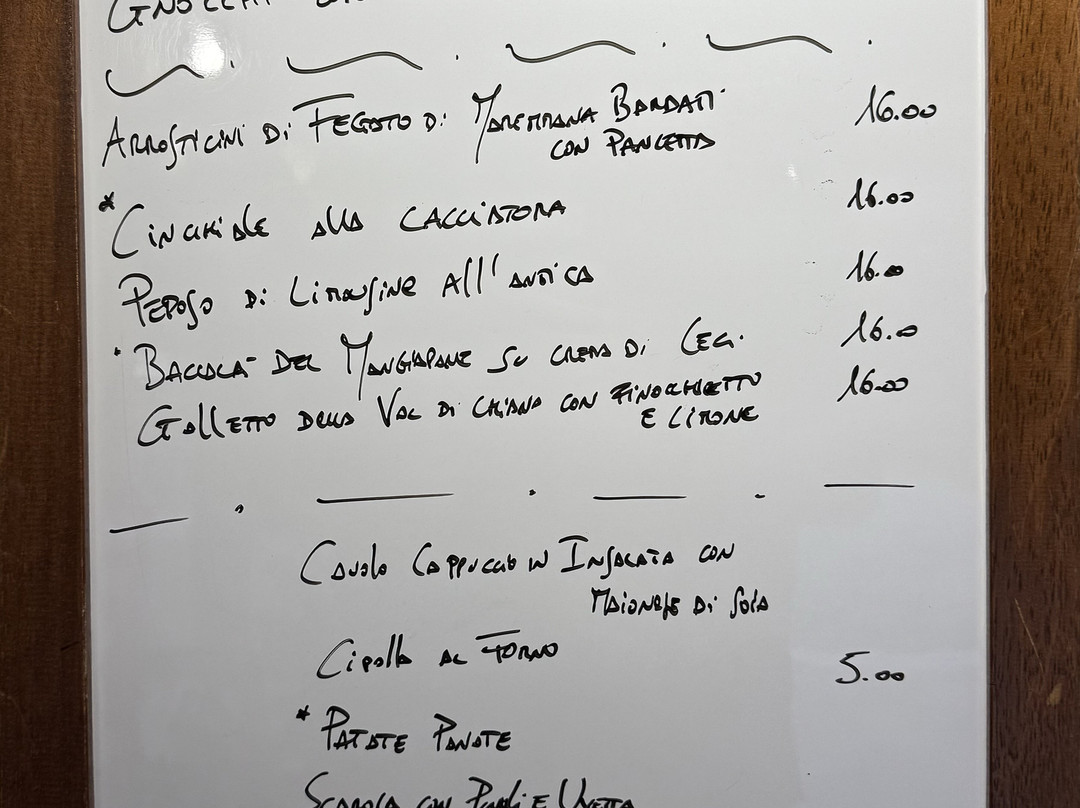 Gnocchi
Arrosticini di Fegato di Maremmana Bardati 16.00
con Pancetta
* Cinghiale alla Cacciatora 16.00
Peposo di Limousine all'antica 16.00
· Baccalà del Mangiapane su crema di Ceci 16.00
Galletto della Val di Chiana con Finocchietto 16.00
e Limone
Cavolo Cappuccio in Insalata con
Maionese di Soia
Cipolla al Forno
5.00
* Patate Panate
Scarola con Pinoli e Uvetta